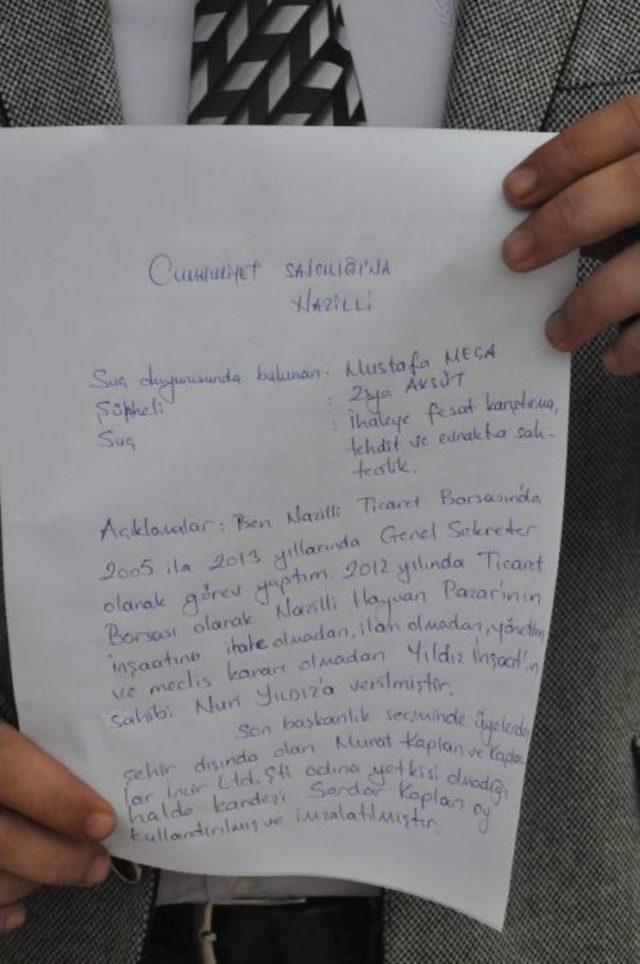 CUMHURİYET SAVCILIĞI'NA
NAZİLLİ
Suç duyurusunda bulunan : Mustafa MEGA
Şüpheli : Ziya AKSÜT
Suç : İhaleye fesat karıştırma,
tehdit ve evrakta sah-
tecilik.
Açıklamalar : Ben Nazilli Ticaret Borsasında
2005 ila 2013 yıllarında Genel Sekreter
olarak görev yaptım. 2012 yılında Ticaret
Borsası olarak Nazilli Hayvan Pazarı'nın
inşaatına ihale olmadan, ilan olmadan, yönetim
ve meclis kararı olmadan Yıldız İnşaat'ın
sahibi Nuri YILDIZ'a verilmiştir.
Son başkanlık seçiminde üyelerden
şehir dışında olan Murat Kaplan ve Kaplan
lar İncir Ltd. Şti adına yetkisi olmadığı
halde kardeşi Serdar Kaplan oy
kullandırılmış ve imzalatılmıştır.